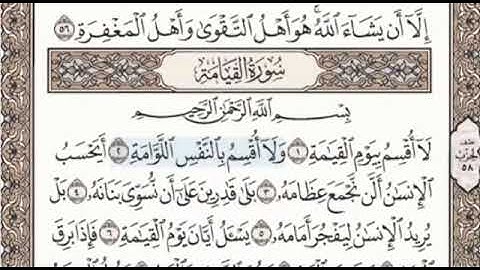 إِلَّا أَن يَشَاءَ اللَّهُ ۚ هُوَ أَهْلُ التَّقْوَىٰ وَأَهْلُ الْمَغْفِرَةِ ٥٦
سُورَةُ القِيَامَةِ
بِسْمِ اللَّهِ الرَّحْمَٰنِ الرَّحِيمِ
لَا أُقْسِمُ بِيَوْمِ الْقِيَٰمَةِ ١ وَلَا أُقْسِمُ بِالنَّفْسِ اللَّوَّامَةِ ٢ أَيَحْسَبُ
الْإِنسَٰنُ أَلَّن نَّجْمَعَ عِظَامَهُۥ ٣ بَلَىٰ قَٰدِرِينَ عَلَىٰ أَن نُّسَوِّيَ بَنَانَهُۥ ٤ بَلْ
يُرِيدُ الْإِنسَٰنُ لِيَفْجُرَ أَمَامَهُۥ ٥ يَسْـَٔلُ أَيَّانَ يَوْمُ الْقِيَٰمَةِ ٦ فَإِذَا بَرِقَ
نصف
الحزب
٥٨